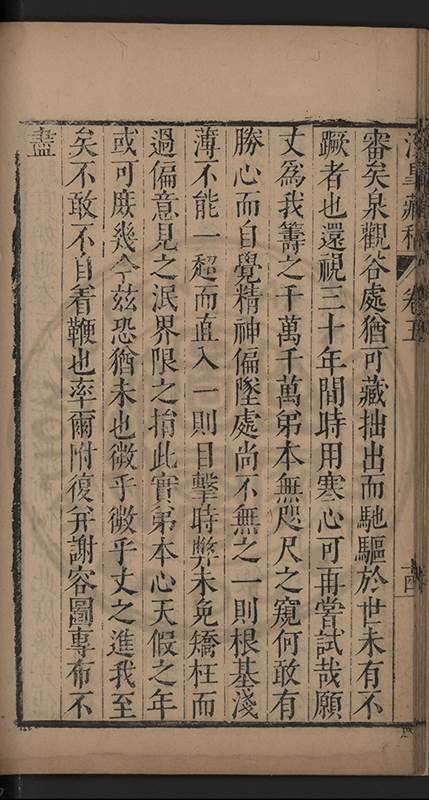 藏稿 卷五
審矣泉觀谷處猶可藏拙出而馳驅於世未有不
蹶者也還視三十年間時用寒心可再嘗試哉願
丈為我籌之千萬千萬弟本無咫尺之窺何敢有
勝心而自覺精神偏墜處尚不無之一則根基淺
薄不能一超而直入一則目擊時弊未免矯枉而
過偏意見之泯界限之掊此實弟本心天假之年
或可庶幾今茲恐猶未也微乎微乎丈之進我至
矣不敢不自着鞭也率爾附復并謝容圖專布不
盡